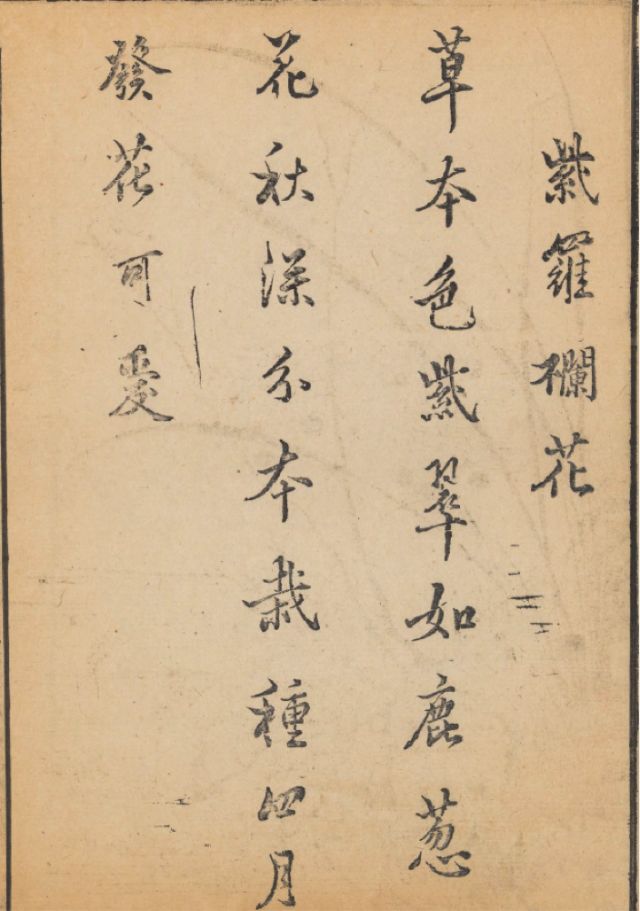 紫羅欄花
草本色紫翠如鹿葱
花秋深分本栽種四月
發花可愛